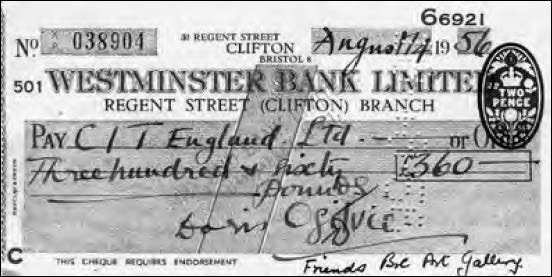 66921
No. XP 038904
30 REGENT STREET
CLIFTON
BRISTOL 8
August 14 1956
501 WESTMINSTER BANK LIMITED
REGENT STREET (CLIFTON) BRANCH
TWO PENCE
PAY CIT England Ltd. or Or
Three hundred & sixty £360
Pounds
Doris Ogilvie
C THIS CHEQUE REQUIRES ENDORSEMENT
Friends Bsl Art Gallery